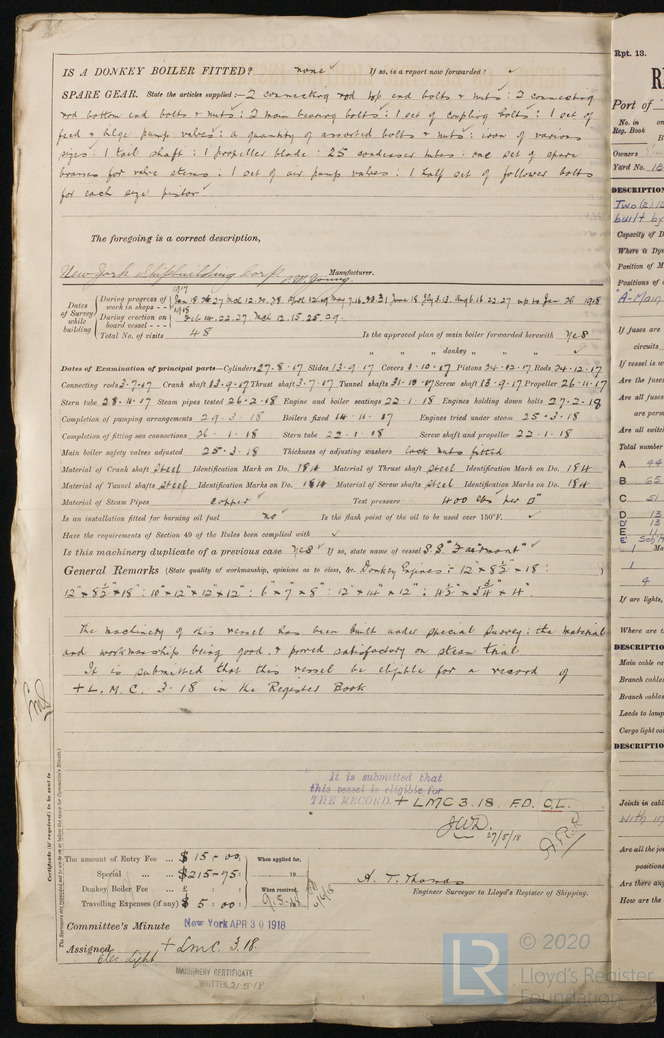 IS A DONKEY BOILER FITTED? none If so, is a report now forwarded? ✓
SPARE GEAR. State the articles supplied :— 2 connecting rod top end bolts & nuts : 2 connecting
rod bottom end bolts & nuts : 2 main bearing bolts : 1 set of coupling bolts : 1 set of
feed & bilge pump valves : a quantity of assorted bolts & nuts : iron of various
sizes : 1 tail shaft : 1 propeller blade : 25 condenser tubes : one set of spare
brasses for valve stems : 1 set of air pump valves : 1 half set of follower bolts
for each size piston.
The foregoing is a correct description,
New York Shipbuilding Corp. Manufacturer.
Dates of Survey while building
During progress of work in shops - -
1917
1918
During erection on board vessel - - - Feb 14. 22. 27. Mch 12. 15. 25. 29.
Total No. of visits 48 Is the approved plan of main boiler forwarded herewith Yes
" " " donkey " " " ✓
Dates of Examination of principal parts—Cylinders 27.8.17 Slides 13.9.17 Covers 1.10.17 Pistons 24.12.17 Rods 24.12.17
Connecting rods 3.7.17 Crank shaft 13.9.17 Thrust shaft 3.7.17 Tunnel shafts 31.10.17 Screw shaft 13.9.17 Propeller 26.11.17
Stern tube 28.11.17 Steam pipes tested 26.2.18 Engine and boiler seatings 22.1.18 Engines holding down bolts 27.2.18
Completion of pumping arrangements 29.3.18 Boilers fixed 14.11.17 Engines tried under steam 25.3.18
Completion of fitting sea connections 26.1.18 Stern tube 22.1.18 Screw shaft and propeller 22.1.18
Main boiler safety valves adjusted 25.3.18 Thickness of adjusting washers lock nuts fitted
Material of Crank shaft Steel Identification Mark on Do. 184 Material of Thrust shaft Steel Identification Mark on Do. 184
Material of Tunnel shafts Steel Identification Mark on Do. 184 Material of Screw shafts Steel Identification Mark on Do. 184
Material of Steam Pipes Copper ✓ Test pressure 400 lbs per □"
Is an installation fitted for burning oil fuel no ✓ Is the flash point of the oil to be used over 150°F. ✓
Have the requirements of Section 49 of the Rules been complied with ✓
Is this machinery duplicate of a previous case Yes ✓ If so, state name of vessel S.S. "Fairmont" ✓
General Remarks (State quality of workmanship, opinions as to class, &c. Donkey Engines :- 12" x 8½" x 18" :
12" x 8½" x 18" : 10" x 12" x 12" x 12" : 6" x 7" x 8" : 12" x 14" x 12" : 4½" x 3¾" x 4"
The machinery of this vessel has been built under special survey : the material
and workmanship being good, & proved satisfactory on steam trial.
It is submitted that this vessel be eligible for a record of
+ L.M.C. 3.18 in the Register Book
It is submitted that
this vessel is eligible for
THE RECORD. + LMC 3.18. F.D. C.L.
JWD.
27/5/18
The amount of Entry Fee ... $ 15 - 00 When applied for,
Special ... $ 215 - 75 19
Donkey Boiler Fee ... £ : : When received,
Travelling Expenses (if any) $ 5 : 00 9.5.18
A. T. Thomas
Engineer Surveyor to Lloyd's Register of Shipping.
Committee's Minute New York APR 30 1918
Assigned + LMC. 3.18.
Elec Light
MACHINERY CERTIFICATE
WRITTEN 21.5.18
Certificate (if required) to be sent to
(The Surveyors are requested not to write on or below the space for Committee's Minute.)
© 2020
LR
Lloyd's Register
Foundation
Rpt. 13.
Port of
No. in
Reg. Book
Owners
Yard No.
DESCRIPTION
Two (2)
built by
Capacity of D
Where is Dy
Position of M
Positions of
"A" - Main
If fuses are
circuits
If vessel is
Are the fuses
Are all fuses
are perm
Are all switc
Total number
A 44
B 65
C 51
D 13
D' 13
E 11
1
1
4
If are lights,
Where are
DESCRIPTIO
Main cable ca
Branch cables
Branch cables
Leads to lamp
Cargo light ca
DESCRIPTIO
Joints in cabl
with
Are all the jo
positions
Are there any
How are the